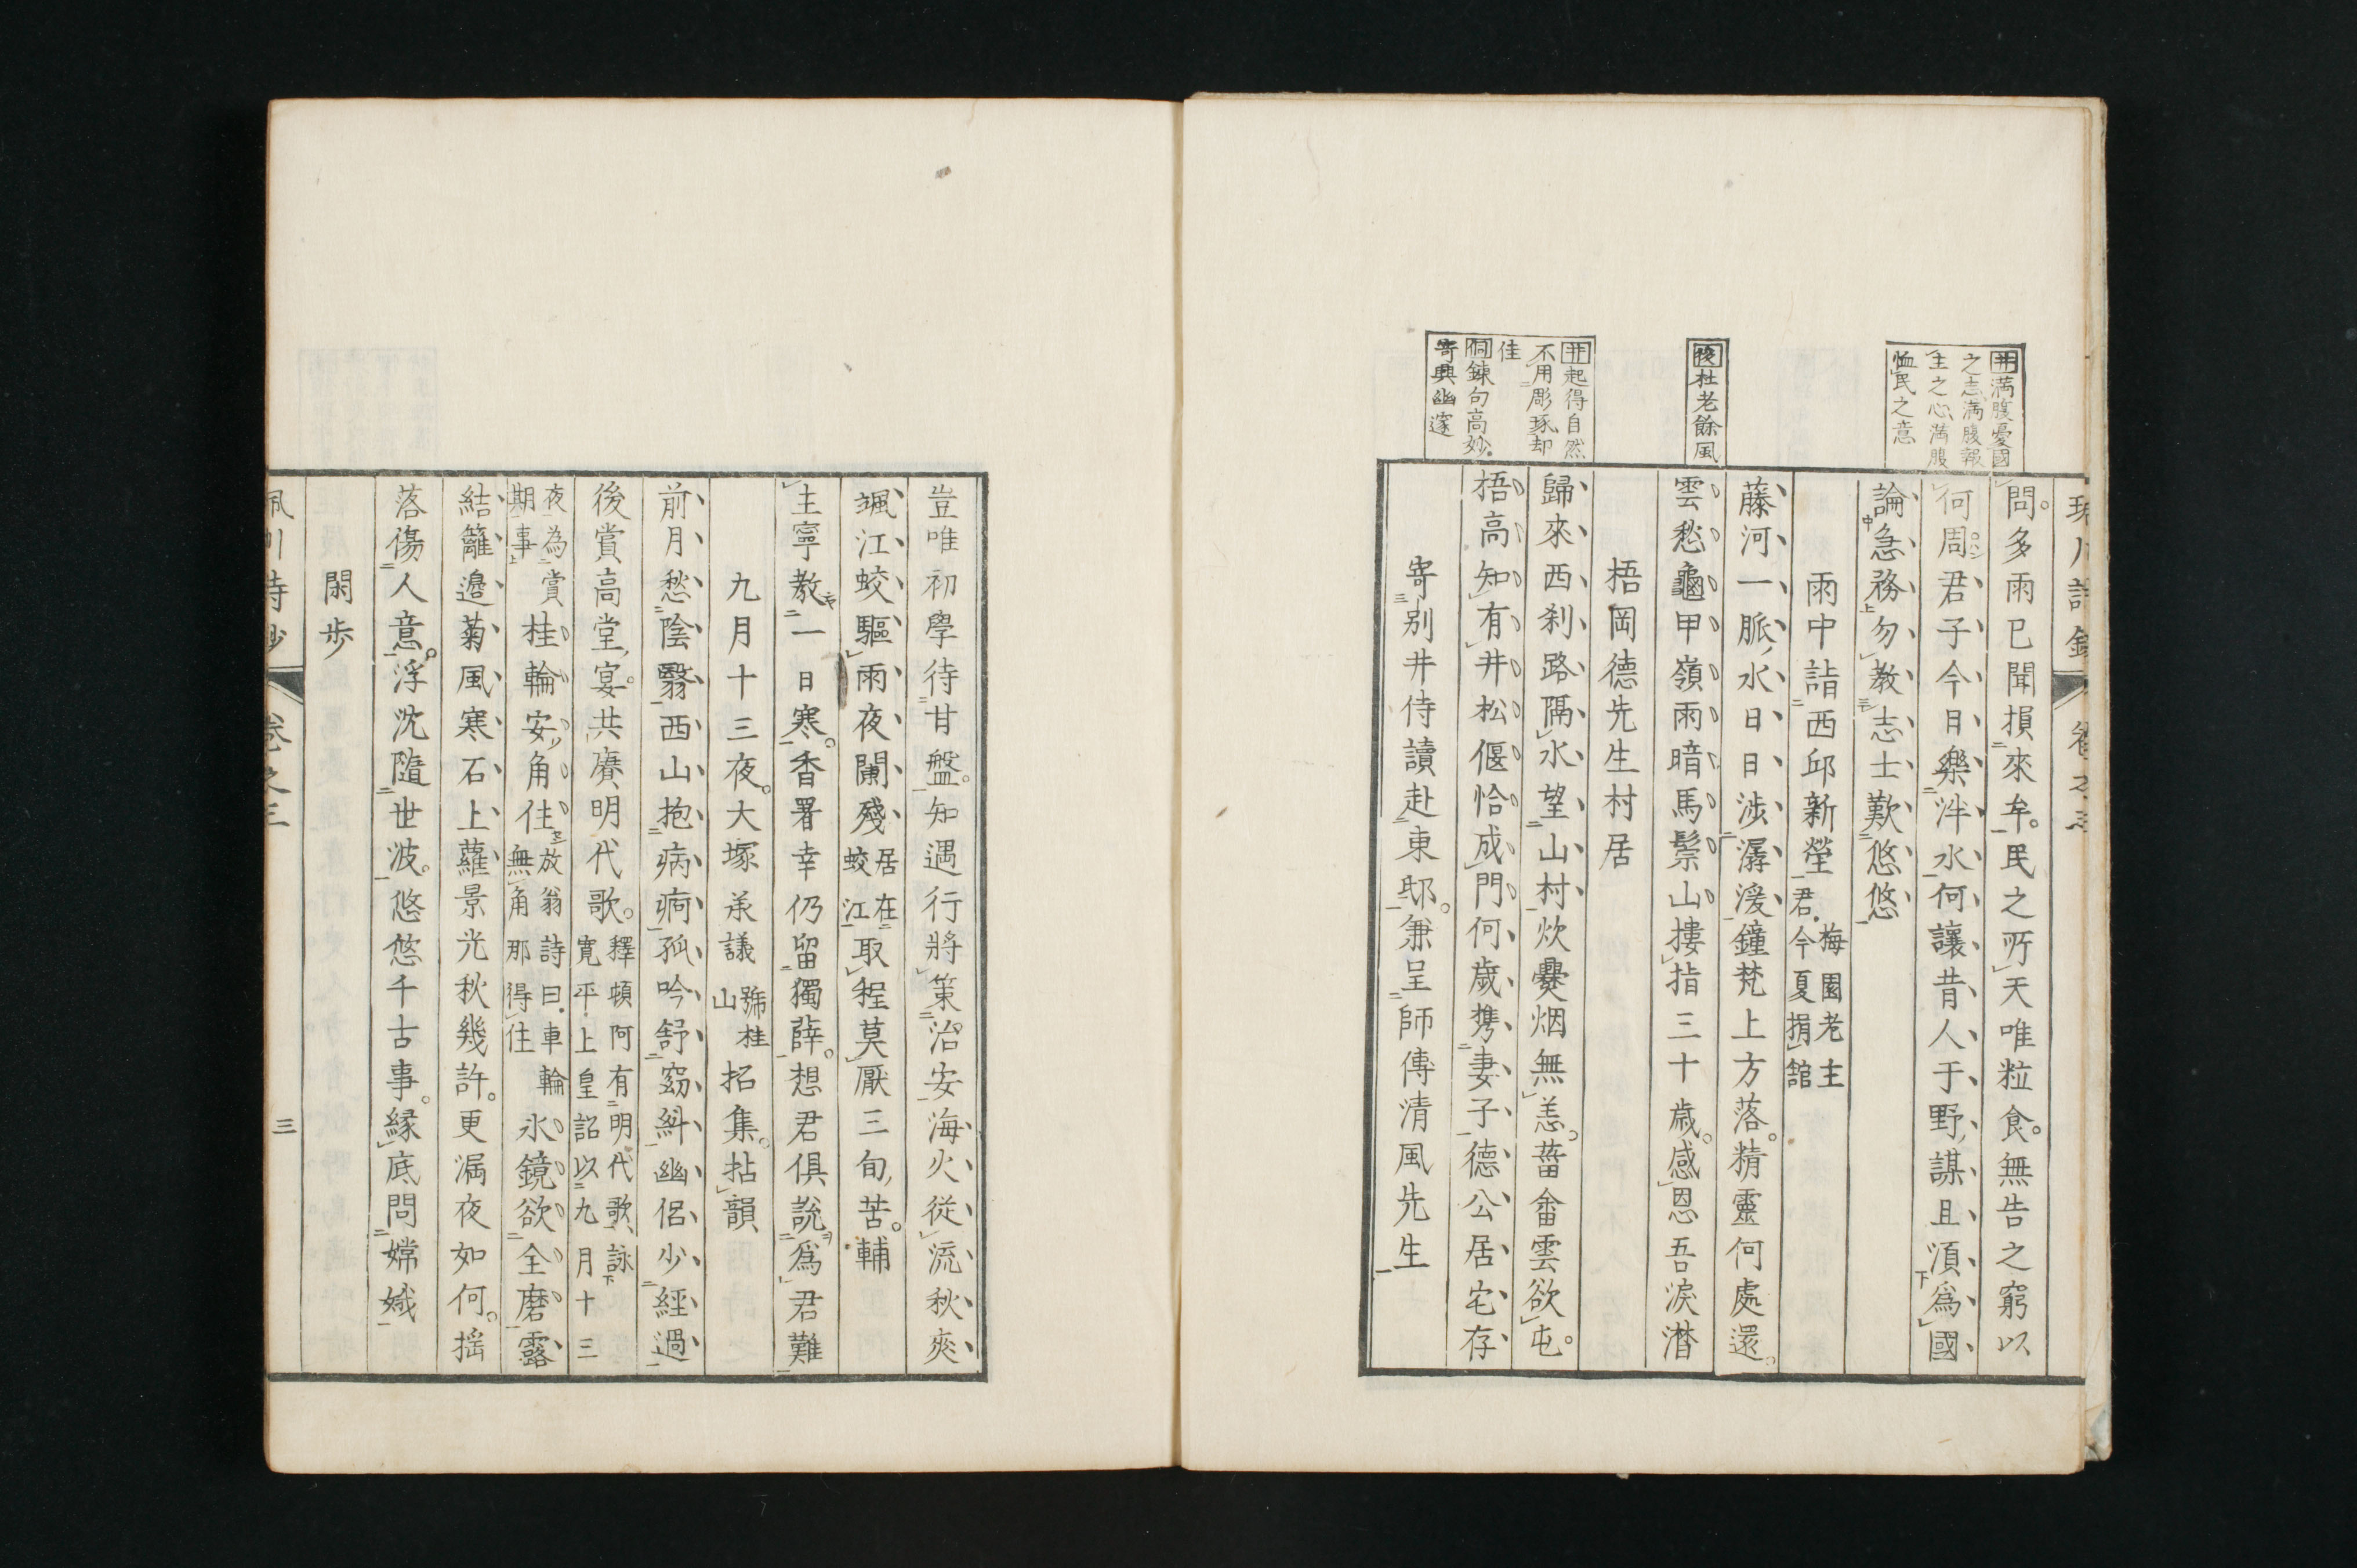 井満腹憂國
之志満腹報
主之心満腹
恤民之意
後杜老餘風
井起得自然
不用彫琢却
佳
侗錬句高妙
寄興幽邃
問。多雨已聞損來牟。民之所天唯粒食。無告之窮以
何周。君子今日樂泮水何讓昔人于野謀且湏爲國
論急務勿教志士歎悠悠
雨中詣西邱新塋 梅園老主
君今夏捐館
藤河一脈水日日涉潺湲鐘梵上方落。精靈何處還。
雲愁龜甲嶺雨暗馬鬃山摟指三十歳。感恩吾淚潸
梧岡德先生村居
歸來西刹路隔水望山村炊爨烟無恙。葘畬雲欲屯。
梧高知有井松偃恰成門何歲携妻子德公居宅存
寄別井侍讀赴東邸。兼呈師傅清風先生
豈唯初學待甘盤。知遇行將策治安海火從流秋爽
颯江蛟驅雨夜闌殘 居在
蛟江 取程莫厭三旬苦。輔
主寧教一日寒。香署幸仍留獨薛。想君俱說爲君難
九月十三夜。大塚承議 號桂
山 招集。拈韻
前月愁陰翳西山抱病痾孤吟舒窈糾幽侶少經過
後賞高堂宴。共賡明代歌。 釋頓阿有明代歌詠
寛平上皇詔以九月十三
夜為賞
期事 桂輪安角住 放翁詩曰車輪
無角那得住 氷鏡欲全磨露
結籬邉菊風寒石上蘿景光秋幾許。更漏夜如何。揺
落傷人意。浮沈隨世波。悠悠千古事。縁底問嫦娥
閑歩
卷之三
三